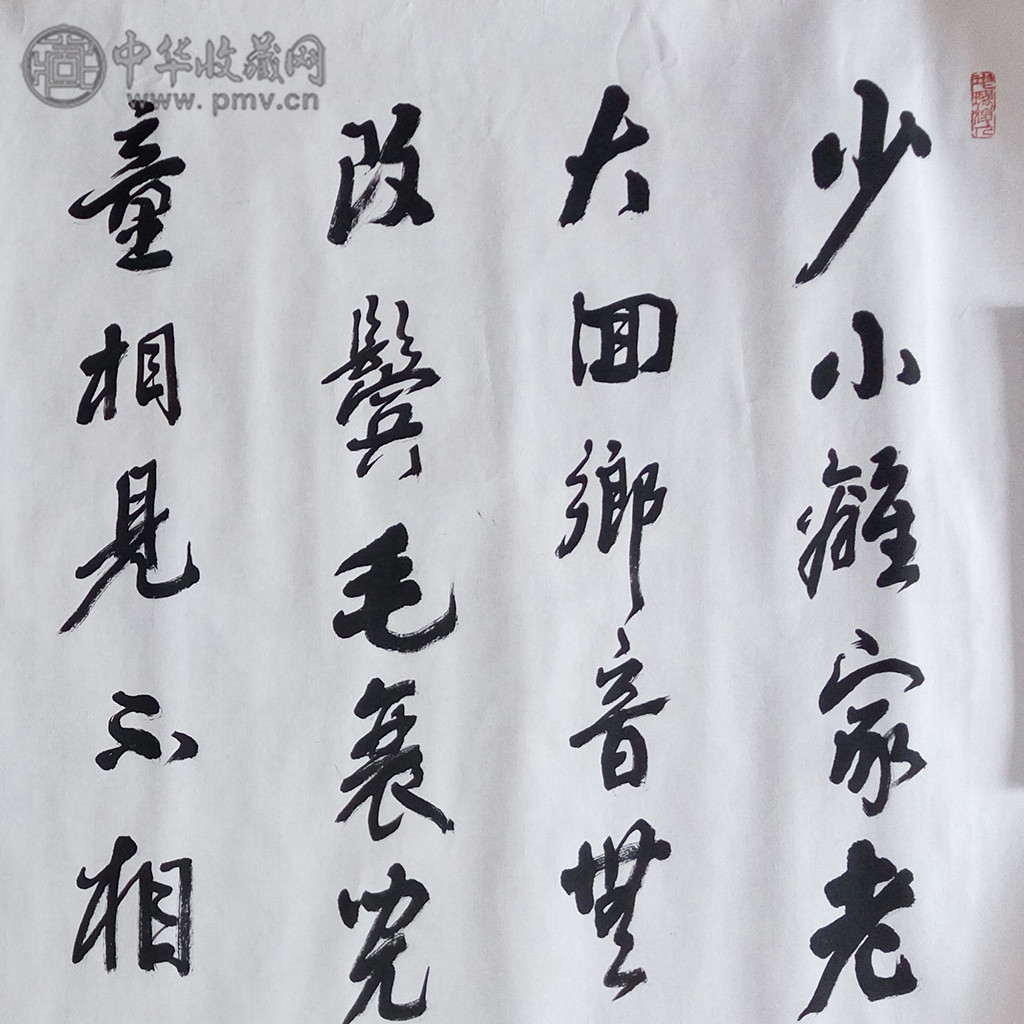 少小離家老
大回鄉音無
改鬢毛衰兒
童相見不相
中华收藏网
www.pmv.cn